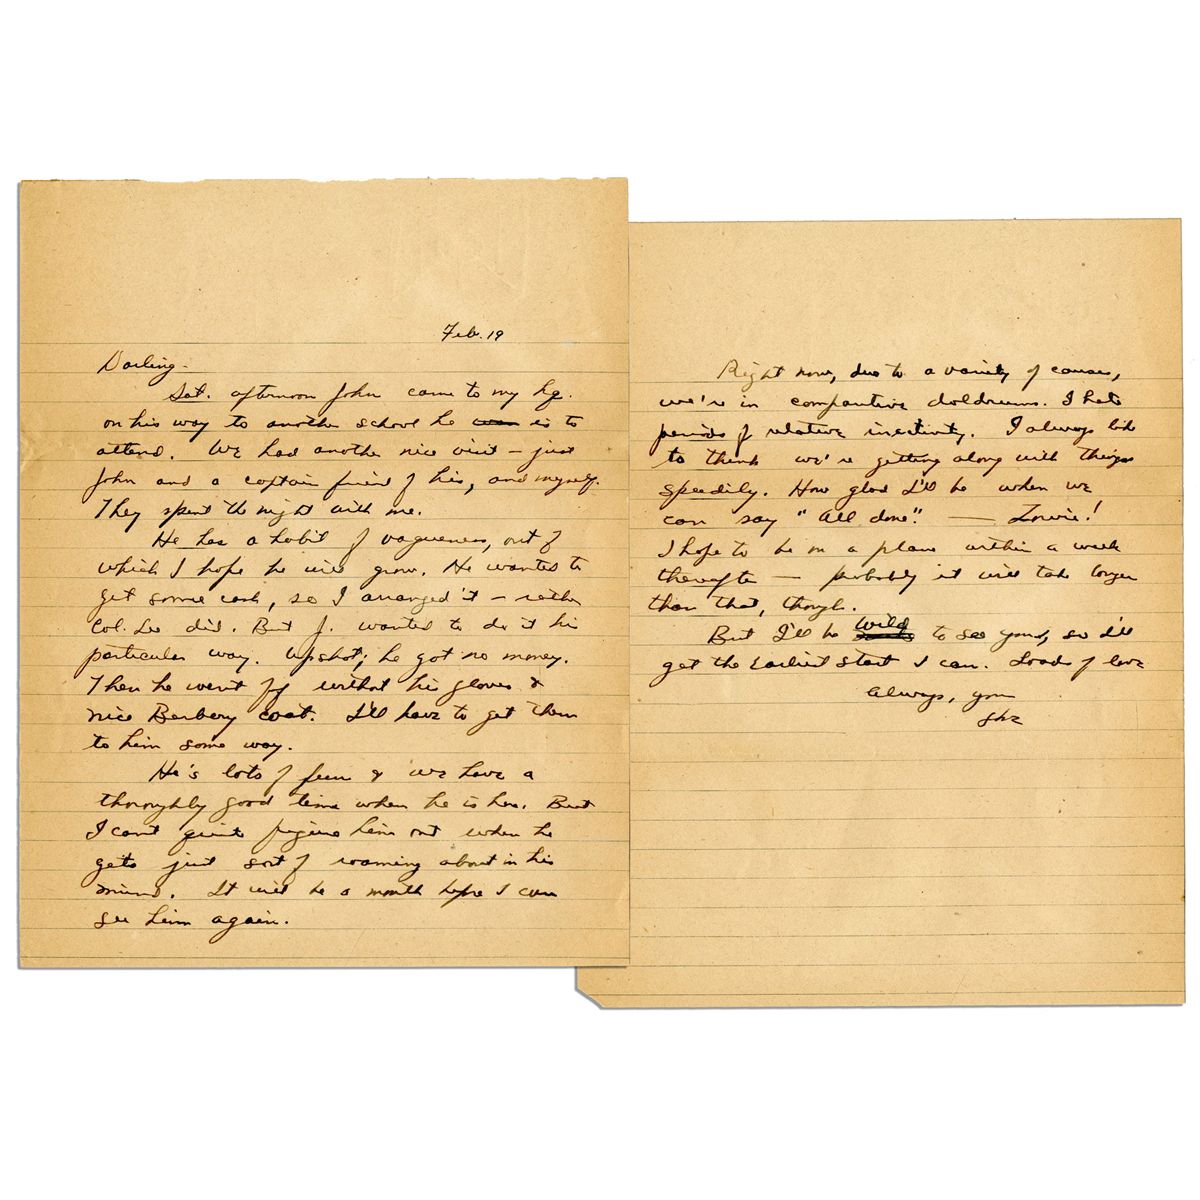 Feb. 19
Darling -
Sat. afternoon John came to my hq.
on his way to another school he is to
attend. We had another nice visit - just
John and a captain friend of his, and myself.
They spent the night with me.
He has a habit of vagueness, out of
which I hope he will grow. He wanted to
get some cash, so I arranged it - rather
Col. Lee did. But J. wanted to do it his
particular way. Upshot; he got no money.
Then he went off without his gloves &
nice Berbery coat. I'll have to get them
to him some way.
He's lots of fun & we have a
thoroughly good time when he is here. But
I can't quite figure him out when he
gets just sort of roaming about in his
mind. It will be a month before I can
see him again.
Right now, due to a variety of causes,
we're in comparative doldrums. I hate
periods of relative inactivity. I always like
to think we're getting along with things
speedily. How glad I'll be when we
can say "all done". —
I hope to be on a plane within a week
thereafter — probably it will take longer
than that, though.
But I'll be wild to see you, so I'll
get the earliest start I can. Loads of love
Always, your